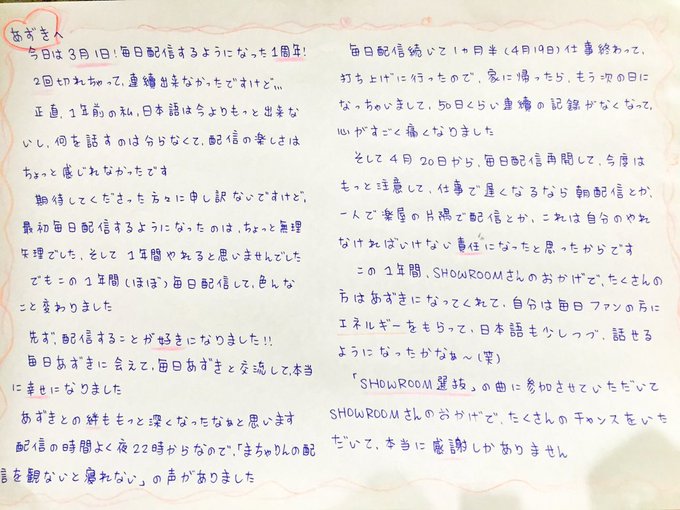 あずきへ
今日は3月1日!毎日配信するようになった1周年!
2回切れちゃって、連続出来なかったですけど...
正直、1年前の私、日本語は今よりもっと出来な
いし、何を話すのは分らなくて、配信の楽しさは
ちょっと感じれなかったです
期待してくださった方々に申し訳ないですけど、
最初毎日配信するようになったのは、ちょっと無理
矢理でした、そして1年間やれると思いませんでした
でもこの1年間(ほぼ)毎日配信して、色んな
こと変わりました
先ず、配信することが好きになりました!!
毎日あずきに会えて、毎日あずきと交流して、本当
に幸せになりました
あずきとの絆ももっと深くなったなぁと思います
配信の時間よく夜22時からなので、「まちゃりんの配
信を観ないと寝れない」の声がありました
毎日配信続いて1ヵ月半(4月19日)仕事終わって、
打ち上げに行ったので、家に帰ったら、もう次の日に
なっちゃいまして、50日くらい連続の記録がなくなって、
心がすごく痛くなりました
そして4月20日から、毎日配信再開して、今度は
もっと注意して、仕事で遅くなるなら朝配信とか、
一人で楽屋の片隅で配信とか、これは自分のやれ
なければいけない責任になったと思ったからです
この1年間、SHOWROOMさんのおかげで、たくさんの
方はあずきになってくれて、自分は毎日ファンの方に
エネルギーをもらって、日本語も少しつづ、話せる
ようになったかなぁ〜(笑)
「SHOWROOM選抜」の曲に参加させていただいて
SHOWROOMさんのおかげで、たくさんのチャンスをいた
だいて、本当に感謝しかありません